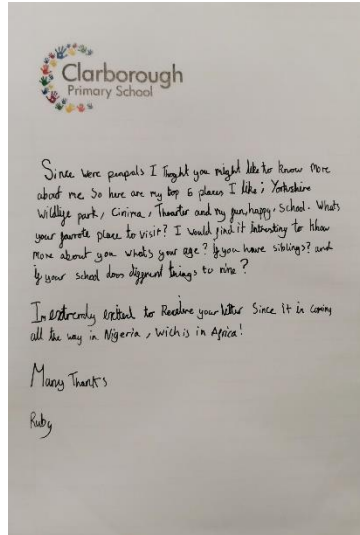 Clarborough
Primary School
Since were penpals I thoght you might like to know more
about me. So here are my top 6 places I like; Yorkshire
Wildlife park, Cinima, Thearter and my fun, happy, School. Whats
your favrote place to visit? I would find it intresting to know
more about you whats your age? If you have siblings? and
if your school does diffrent things to mine?
Im extremly exited to Receive your letter Since it is coming
all the way in Nigeria, Wich is in Africa!
Many Thanks
Ruby